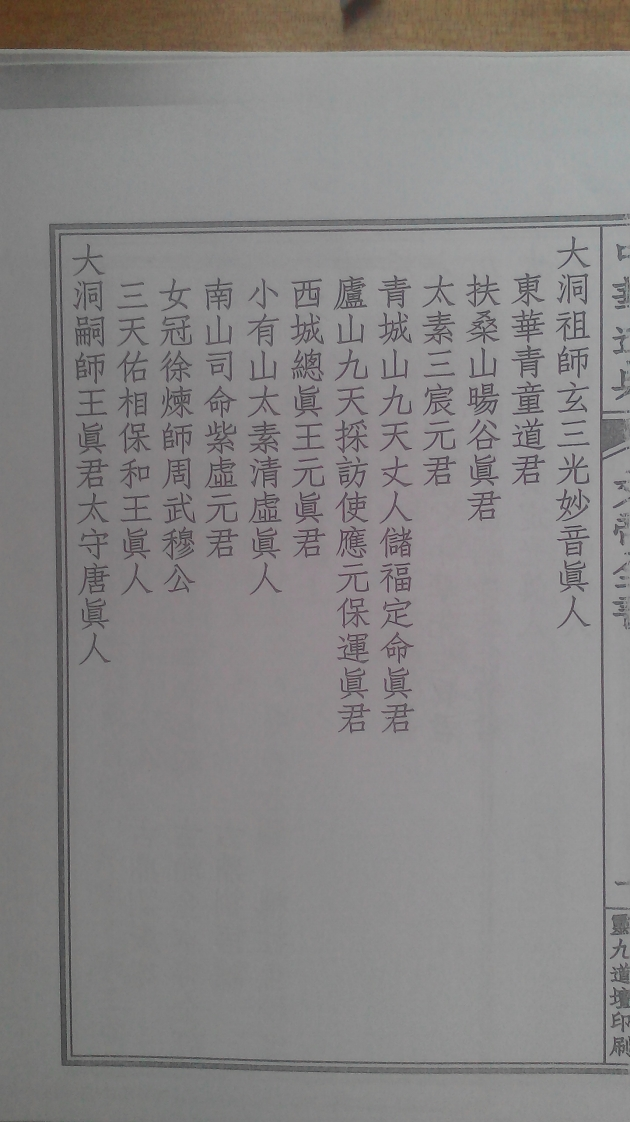 中華道典
文帝全書
一
靈九道壇印刷
大洞祖師玄三光妙音眞人
東華青童道君
扶桑山暘谷眞君
太素三宸元君
青城山九天丈人儲福定命眞君
廬山九天採訪使應元保運眞君
西城總眞王元眞君
小有山太素清虛眞人
南山司命紫虛元君
女冠徐煉師周武穆公
三天佑相保和王眞人
大洞嗣師王眞君太守唐眞人